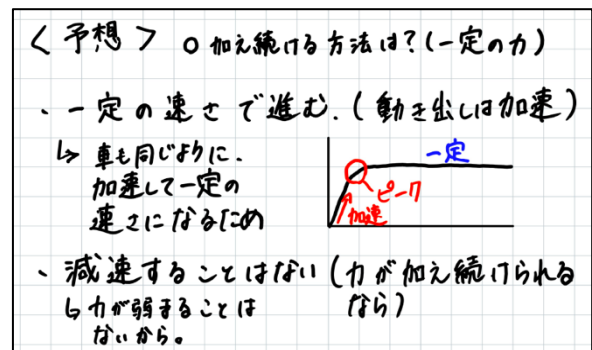 <予想> ○ 加え続ける方法は?(一定の力)
・一定の速さで進む.(動き出しは加速)
↳ 車も同じように、
加速して一定の
速さになるため
一定
ピーク
加速
・減速することはない(力が加え続けられる
なら)
↳ 力が弱まることは
ないから。